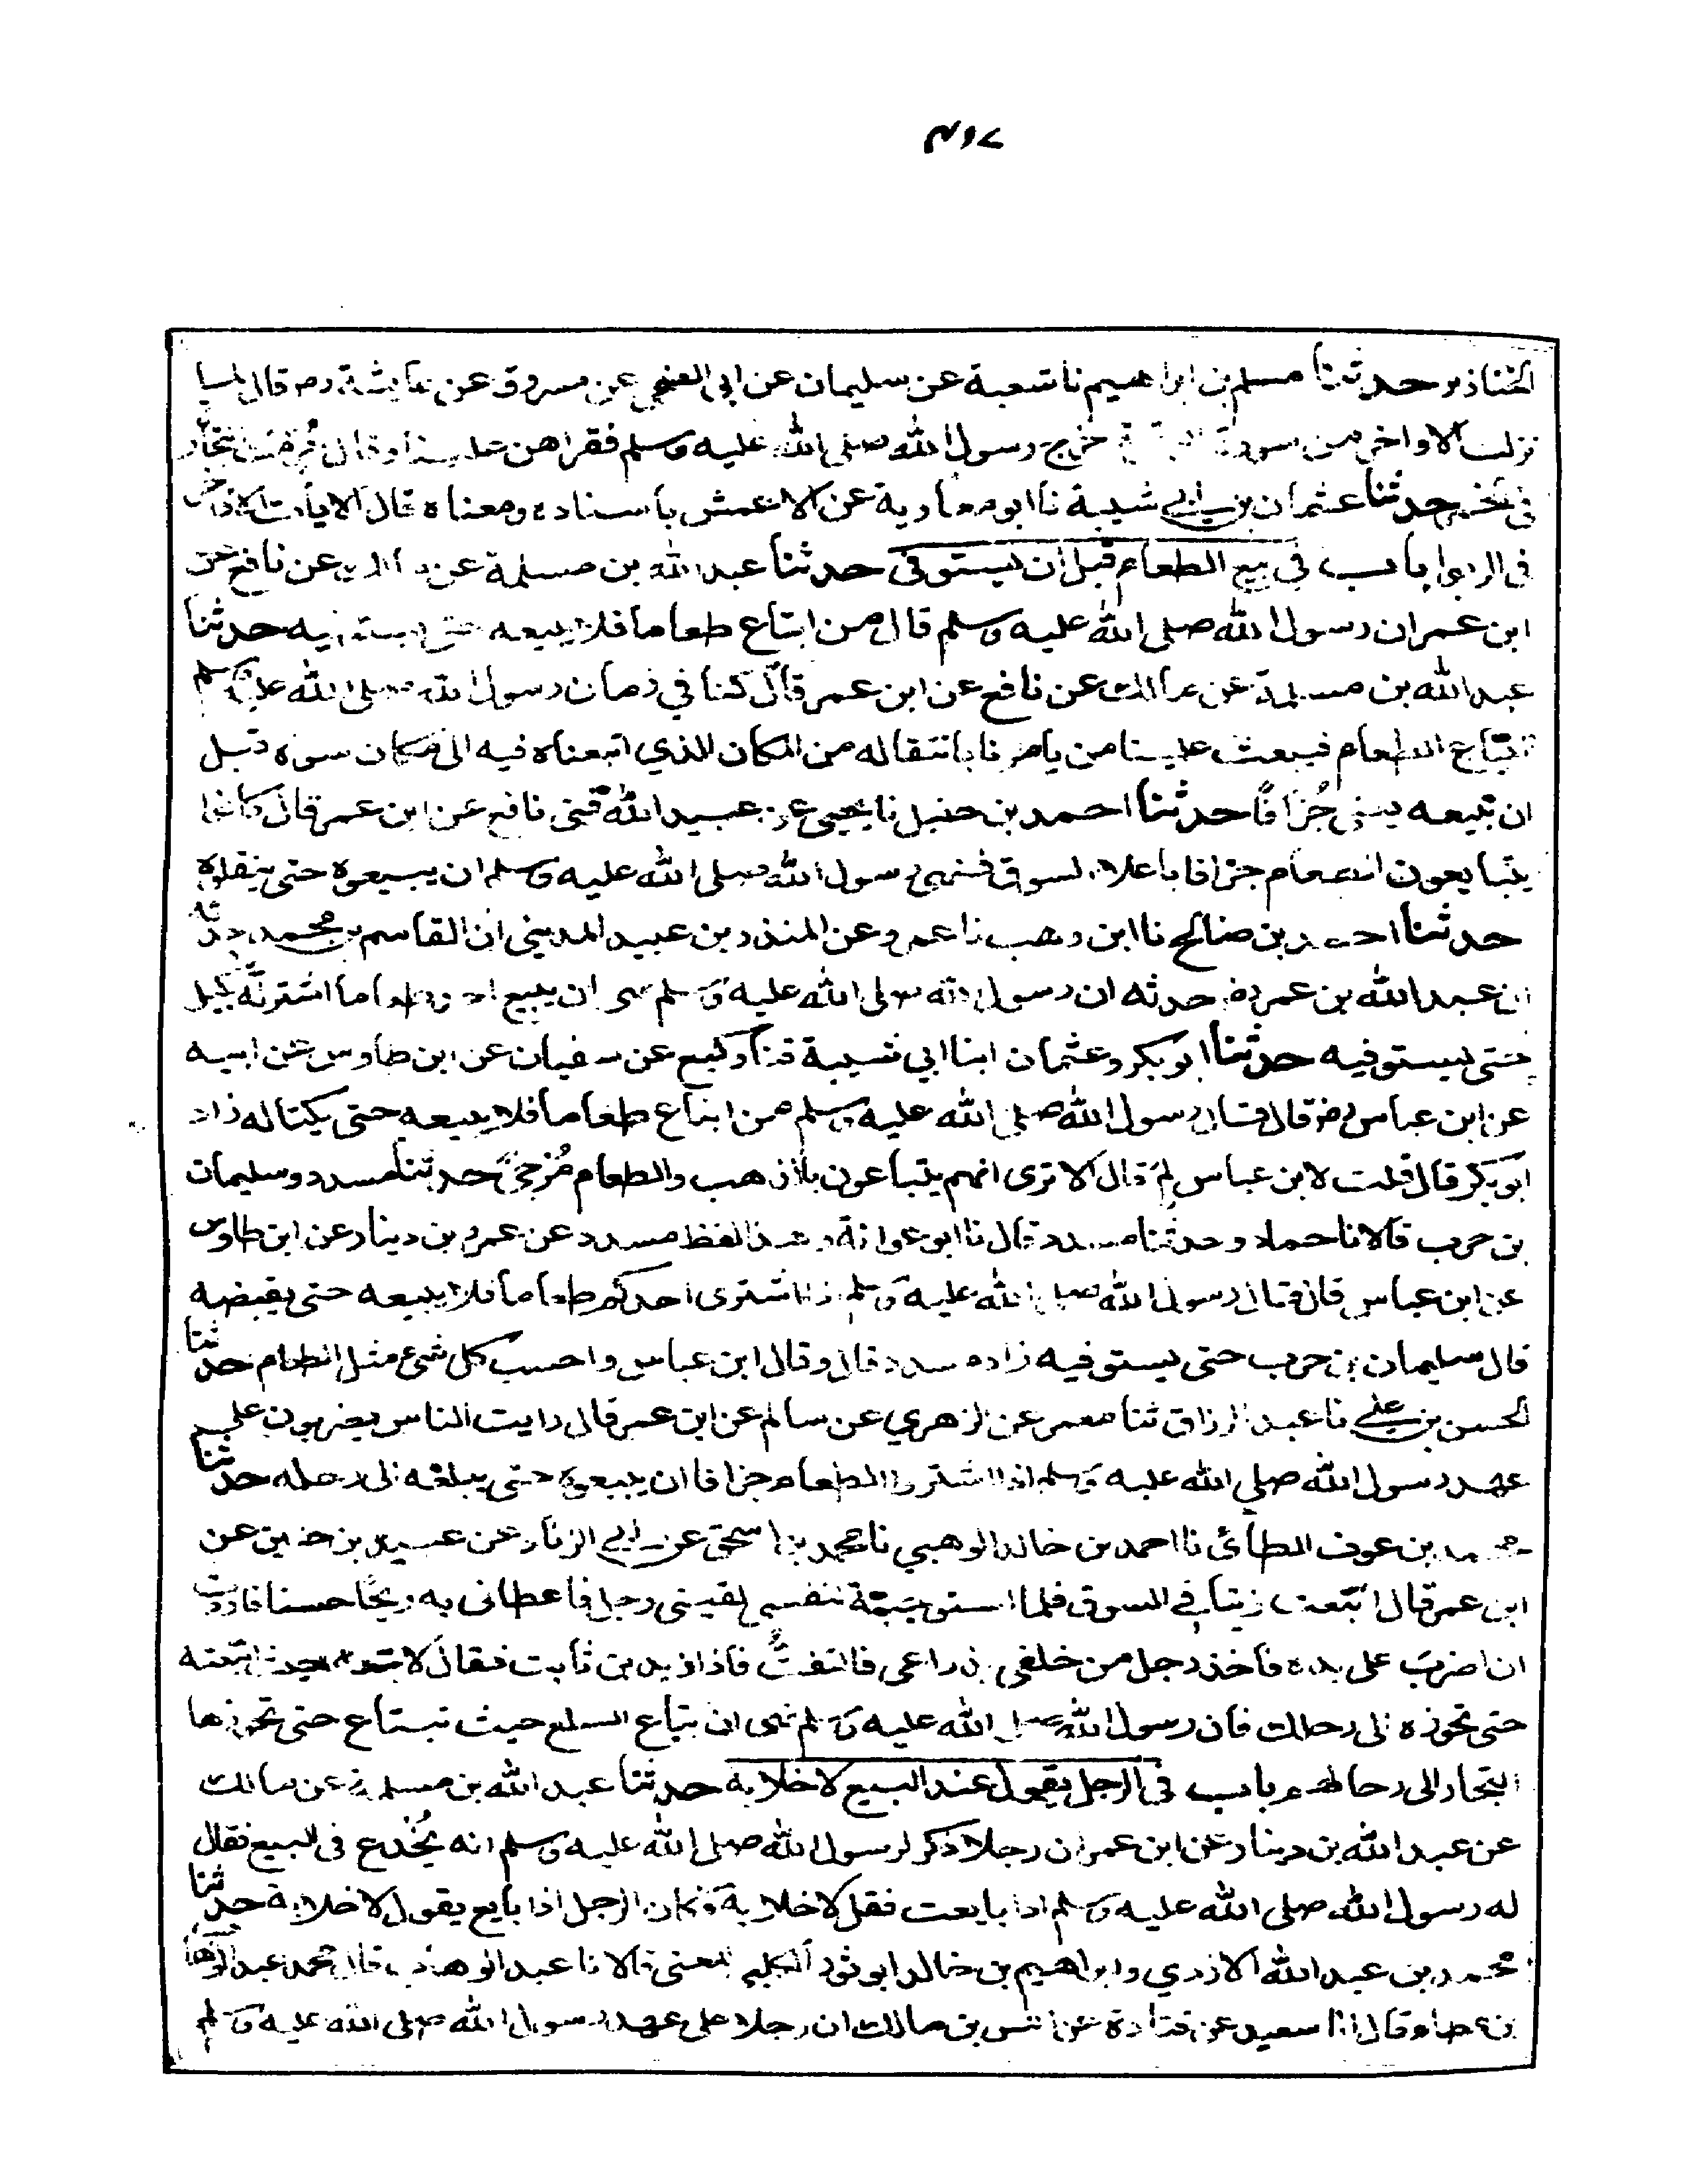 الخنازير حدثنا مسلم بن ابراهيم نا شعبة عن سليمان عن ابي الضحى عن مسروق عن عايشة رض قال لما
نزلت الاواخر من سورة خرج رسول الله صلى الله عليه وسلم فقراهن علينا وقال حرمت التجارة
في الخمر حدثنا عثمان بن ابي شيبة نا ابو معاوية عن الاعمش باسناده ومعناه قال الايات الاواخر
في الربوا باب في بيع الطعام قبل ان يستوفى حدثنا عبد الله بن مسلمة عن مالك عن نافع عن
ابن عمر ان رسول الله صلى الله عليه وسلم قال من ابتاع طعاما فلا يبيعه حتى يستوفيه حدثنا
عبد الله بن مسلمة عن مالك عن نافع عن ابن عمر قال كنا في زمان رسول الله صلى الله عليه وسلم
نبتاع الطعام فيبعث علينا من يامرنا بانتقاله من المكان الذي ابتعناه فيه الى مكان سوه قبل
ان نبيعه يعني جُزافًا حدثنا احمد بن حنبل نا يحيى عن عبيد الله قثنى نافع عن ابن عمر قال كانوا
يتبايعون الطعام جزافا باعلا السوق فنهى رسول الله صلى الله عليه وسلم ان يبيعوه حتى ينقلوه
حدثنا احمد بن صالح نا ابن وهب نا عمرو عن المنذر بن عبيد المديني ان القاسم بن محمد حدثه
ان عبد الله بن عمر رض حدثه ان رسول الله صلى الله عليه وسلم نهى ان يبيع احد طعاما اشتراه بكيل
حتى يستوفيه حدثنا ابو بكر وعثمان ابنا ابي شيبة قثنا وكيع عن سفيان عن ابن طاوس عن ابيه
عن ابن عباس رض قال قال رسول الله صلى الله عليه وسلم من ابتاع طعاما فلا يبيعه حتى يكتاله زاد
ابو بكر قال قلت لابن عباس لِمَ قال الا ترى انهم يتباعون بالذهب والطعام مُرجًى حدثنا مسدد وسليمان
بن حرب قالا نا حماد وحدثنا مسدد قال نا ابو عوانة وهذا لفظ مسدد عن عمرو بن دينار عن ابن طاوس
عن ابن عباس قال قال رسول الله صلى الله عليه وسلم اذا اشترى احدكم طعاما فلا يبيعه حتى يقبضه
قال سليمان بن حرب حتى يستوفيه زاد مسدد قال وقال ابن عباس واحسب كل شئ مثل الطعام حدثنا
الحسن بن علي نا عبد الرزاق ثنا معمر عن الزهري عن سالم عن ابن عمر قال رايت الناس يضربون على
عهد رسول الله صلى الله عليه وسلم اذا اشتروا الطعام جزافا ان يبيعوه حتى يبلغه الى رحله حدثنا
محمد بن عوف الطائى نا احمد بن خالد الوهبي نا محمد بن اسحق عن ابي الزناد عن عبيد بن حنين عن
ابن عمر قال ابتعت زيتا في السوق فلما استوجبته لنفسي لقيني رجل فاعطانى به ربحًا حسنا فاردت
ان اضرب على يده فاخذ رجل من خلفي بذراعي فالتفتُّ فاذا زيد بن ثابت فقال لا حيث ابتعته
حتى تحوزه الى رحالك فان رسول الله صلى الله عليه وسلم نهى ان تباع السلع حيث تبتاع حتى تحوزها
التجار الى رحالهم باب في الرجل يقول عند البيع لا خلابة حدثنا عبد الله بن مسلمة عن مالك
عن عبد الله بن دينار عن ابن عمر ان رجلا ذكر لرسول الله صلى الله عليه وسلم انه يُخدع فى البيع فقال
له رسول الله صلى الله عليه وسلم اذا بايعت فقل لا خلابة فكان الرجل اذا بايع يقول لا خلابة حدثنا
محمد بن عبد الله الازدي وابراهيم بن خالد ابو ثور الكلبي المعنى قالا نا عبد الوهاب قال محمد عبد الوهاب
بن عطاء قال انا سعيد عن قتادة عن انس بن مالك ان رجلا على عهد رسول الله صلى الله عليه وسلم